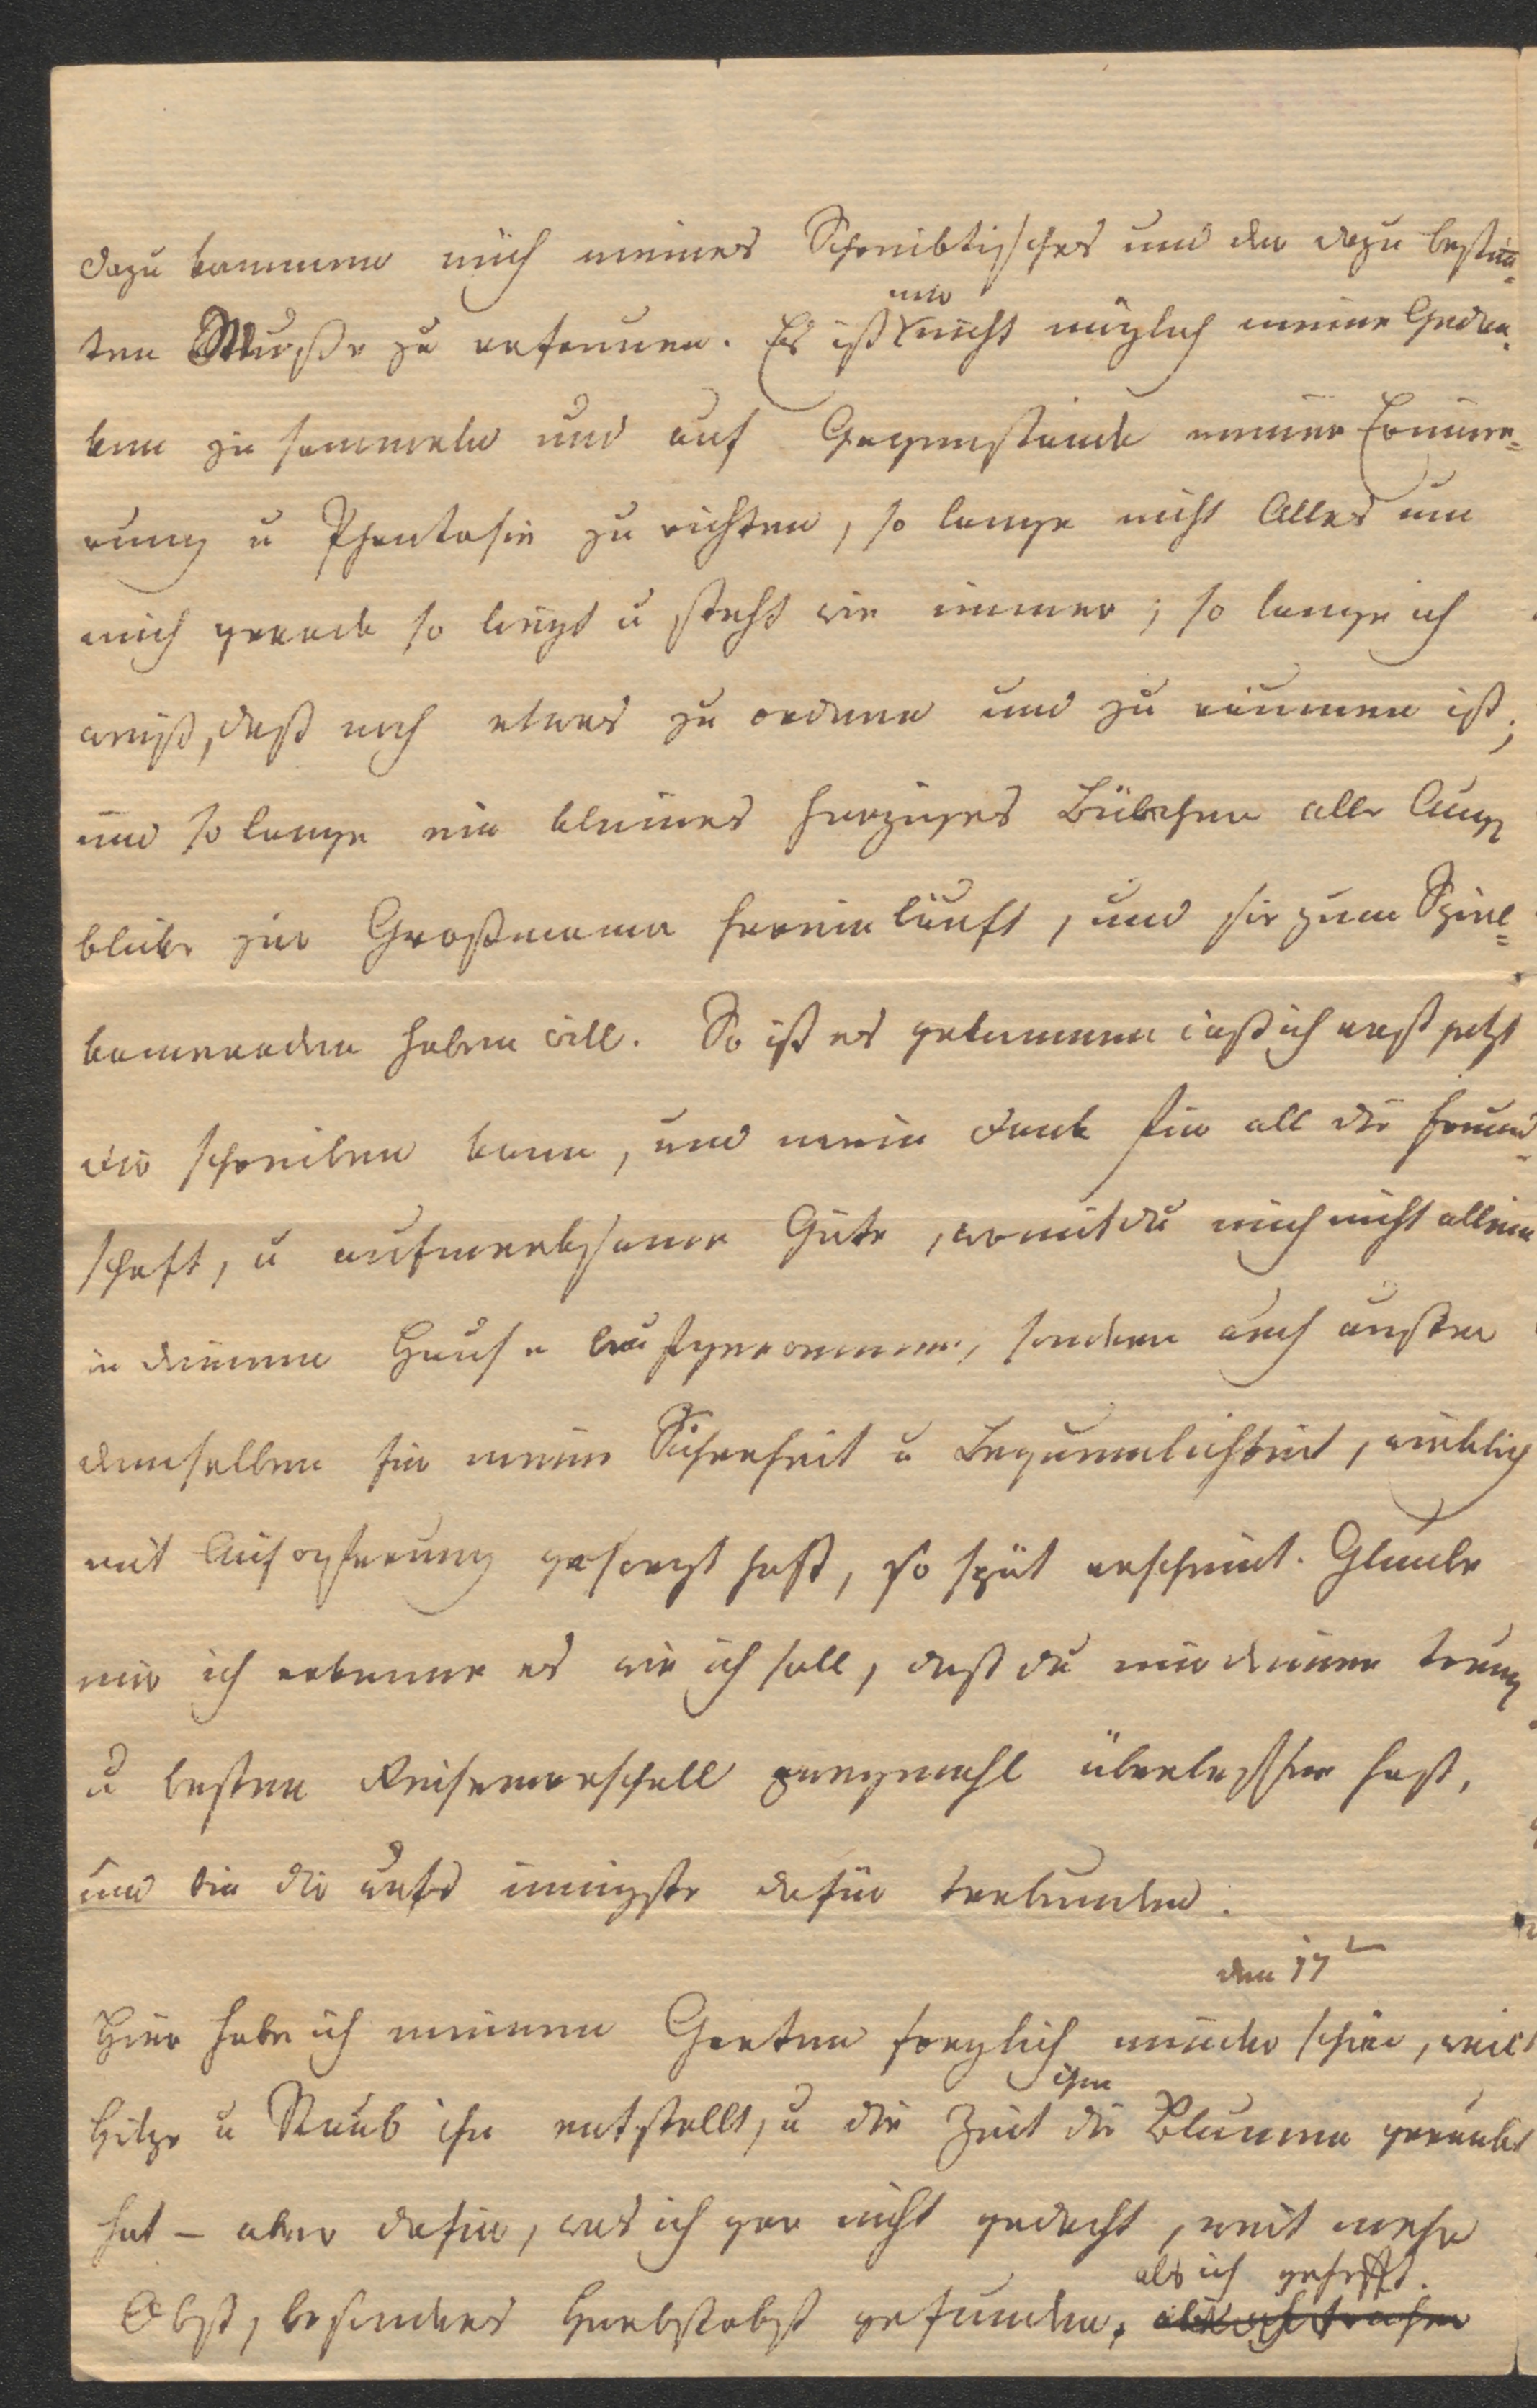 dazu kommen mich meines Schreibtisches und der dazu bestim¯=
ten Muße zu erfreuen. Es ist mir nicht möglich meine Gedan=
ken zu sammeln und auf Gegenstände meiner Erinne=
rung u Phantasie zu richten, so lange nicht Alles um
mich gerade so liegt u steht wie immer; so lange ich
weiß, daß noch etwas zu ordnen und zu räumen ist;
und so lange ein kleines herziges Bübchen alle Aug
blicke zur Großmama hereinläuft, und sie zum Spiel=
kameraden haben will. So ist es gekommen daß ich erst jetzt
dir schreiben kann, und mein Dank für all die Freund=
schaft, u aufmerksame Güte, womit du mich nicht allein
in deinem Hause aufgenommen, sondern auch außer
demselben für meine Sicherheit u Bequemlichkeit, wirklich
mit Aufopferung gesorgt hast, so spät erscheint. Glaube
mir ich erkenne es wie ich soll, daß du mir deinen treuen
u besten Reisemarschall zweymahl überlassen hast,
und bin dir aufs innigste dafür verbunden.
den 17
Hier habe ich meinen Garten freylich minder schön, weil
Hitze u Staub ihn entstellt, u die Zeit ihm die Blumen geraubt
hat – aber dafür, was ich gar nicht gedacht, weit mehr
Obst, besonders Herbstobst gefunden, als ich gehofft.